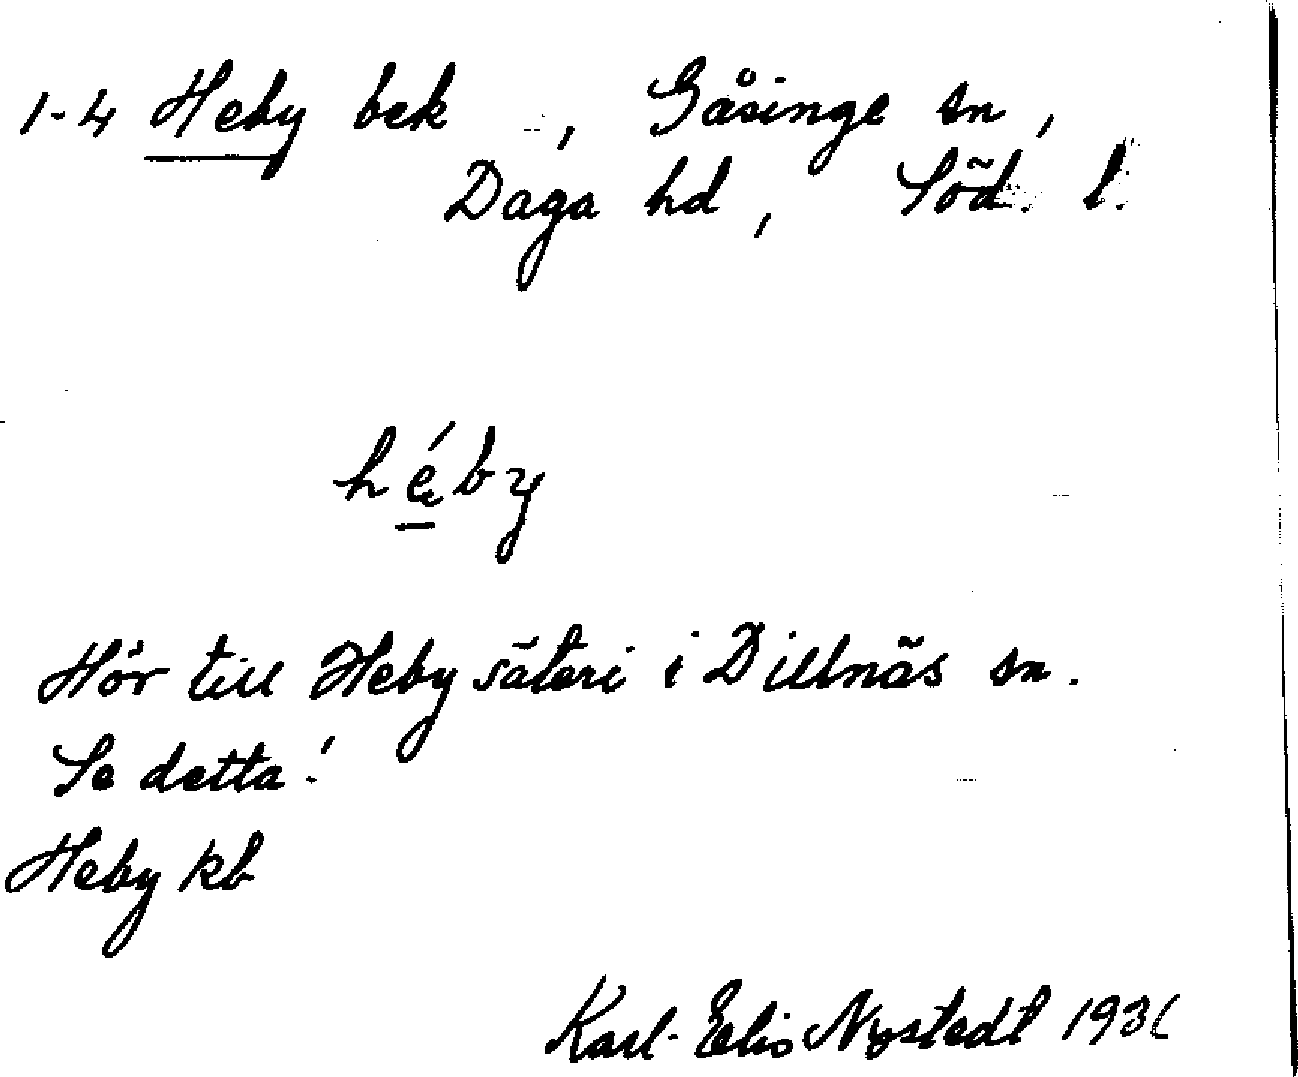 1-4 Heby bek, Gåsinge sn,
Daga hd, Söd. l.
héby
Hör till Heby säteri i Dillnäs sn.
Se detta!
Heby kb
Karl-Elis Nystedt